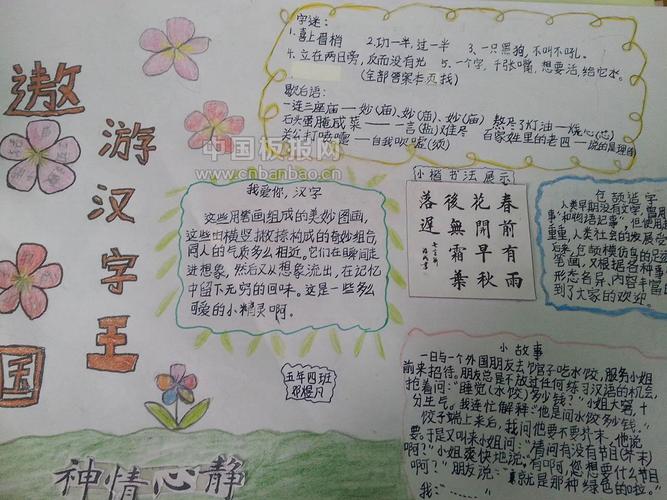 遨
游
汉
字
王
国
字迷:
1.喜上眉梢 2.功一半,过一半 3.一只黑狗,不叫不吼。
4.立在两日旁,反而没有光 5.一个字,千张嘴,想要活,给它水。
(全部答案本页找)
歇后语:
一连三座庙——妙(庙)、妙(庙)、妙(庙) 熬尽了灯油——烧心(芯)
石头蛋腌咸菜——一言(盐)难尽 百家姓里的老四——说的是理
关公打喷嚏——自我吹嘘(须)
中国板报网
www.cnbanbao.cn
我爱你,汉字
这些用笔画组成的美妙图画,
这些由横竖撇捺构成的奇妙组合,
同人的气质多么相近。它们在瞬间走
进想象,然后又从想象流出,在记忆
中留下无穷的回味。这是一些多么
可爱的小精灵啊。
小楷书法展示
春前有雨
花開早秋
後無霜葉
落遲
仓颉造字
人类早期没有文字,曾用
事"和物语记事",但使用
重重,人类社会的发展
后来,仓颉模仿鸟的足
笔画,又根据各种事
形态各异、内容丰富的
到了大家的欢迎
五年四班
小故事
一日与一个外国朋友去饺子馆吃水饺,服务小姐
前来招待。朋友总是不放过任何练习汉语的机会,
抢着问:"睡觉(水饺)多少钱?"小姐大窘,十
分生气。我连忙解释:"他是问水饺多少钱。"
饺子端上来后,我问他要不要芥末,他说
要。于是又叫来小姐问:"请问有没有节目(芥末)
啊?"小姐爽快地说:"有啊,您想要什么节目
啊?"朋友说:"就是那种绿色的啦。"
我:……
神情心静